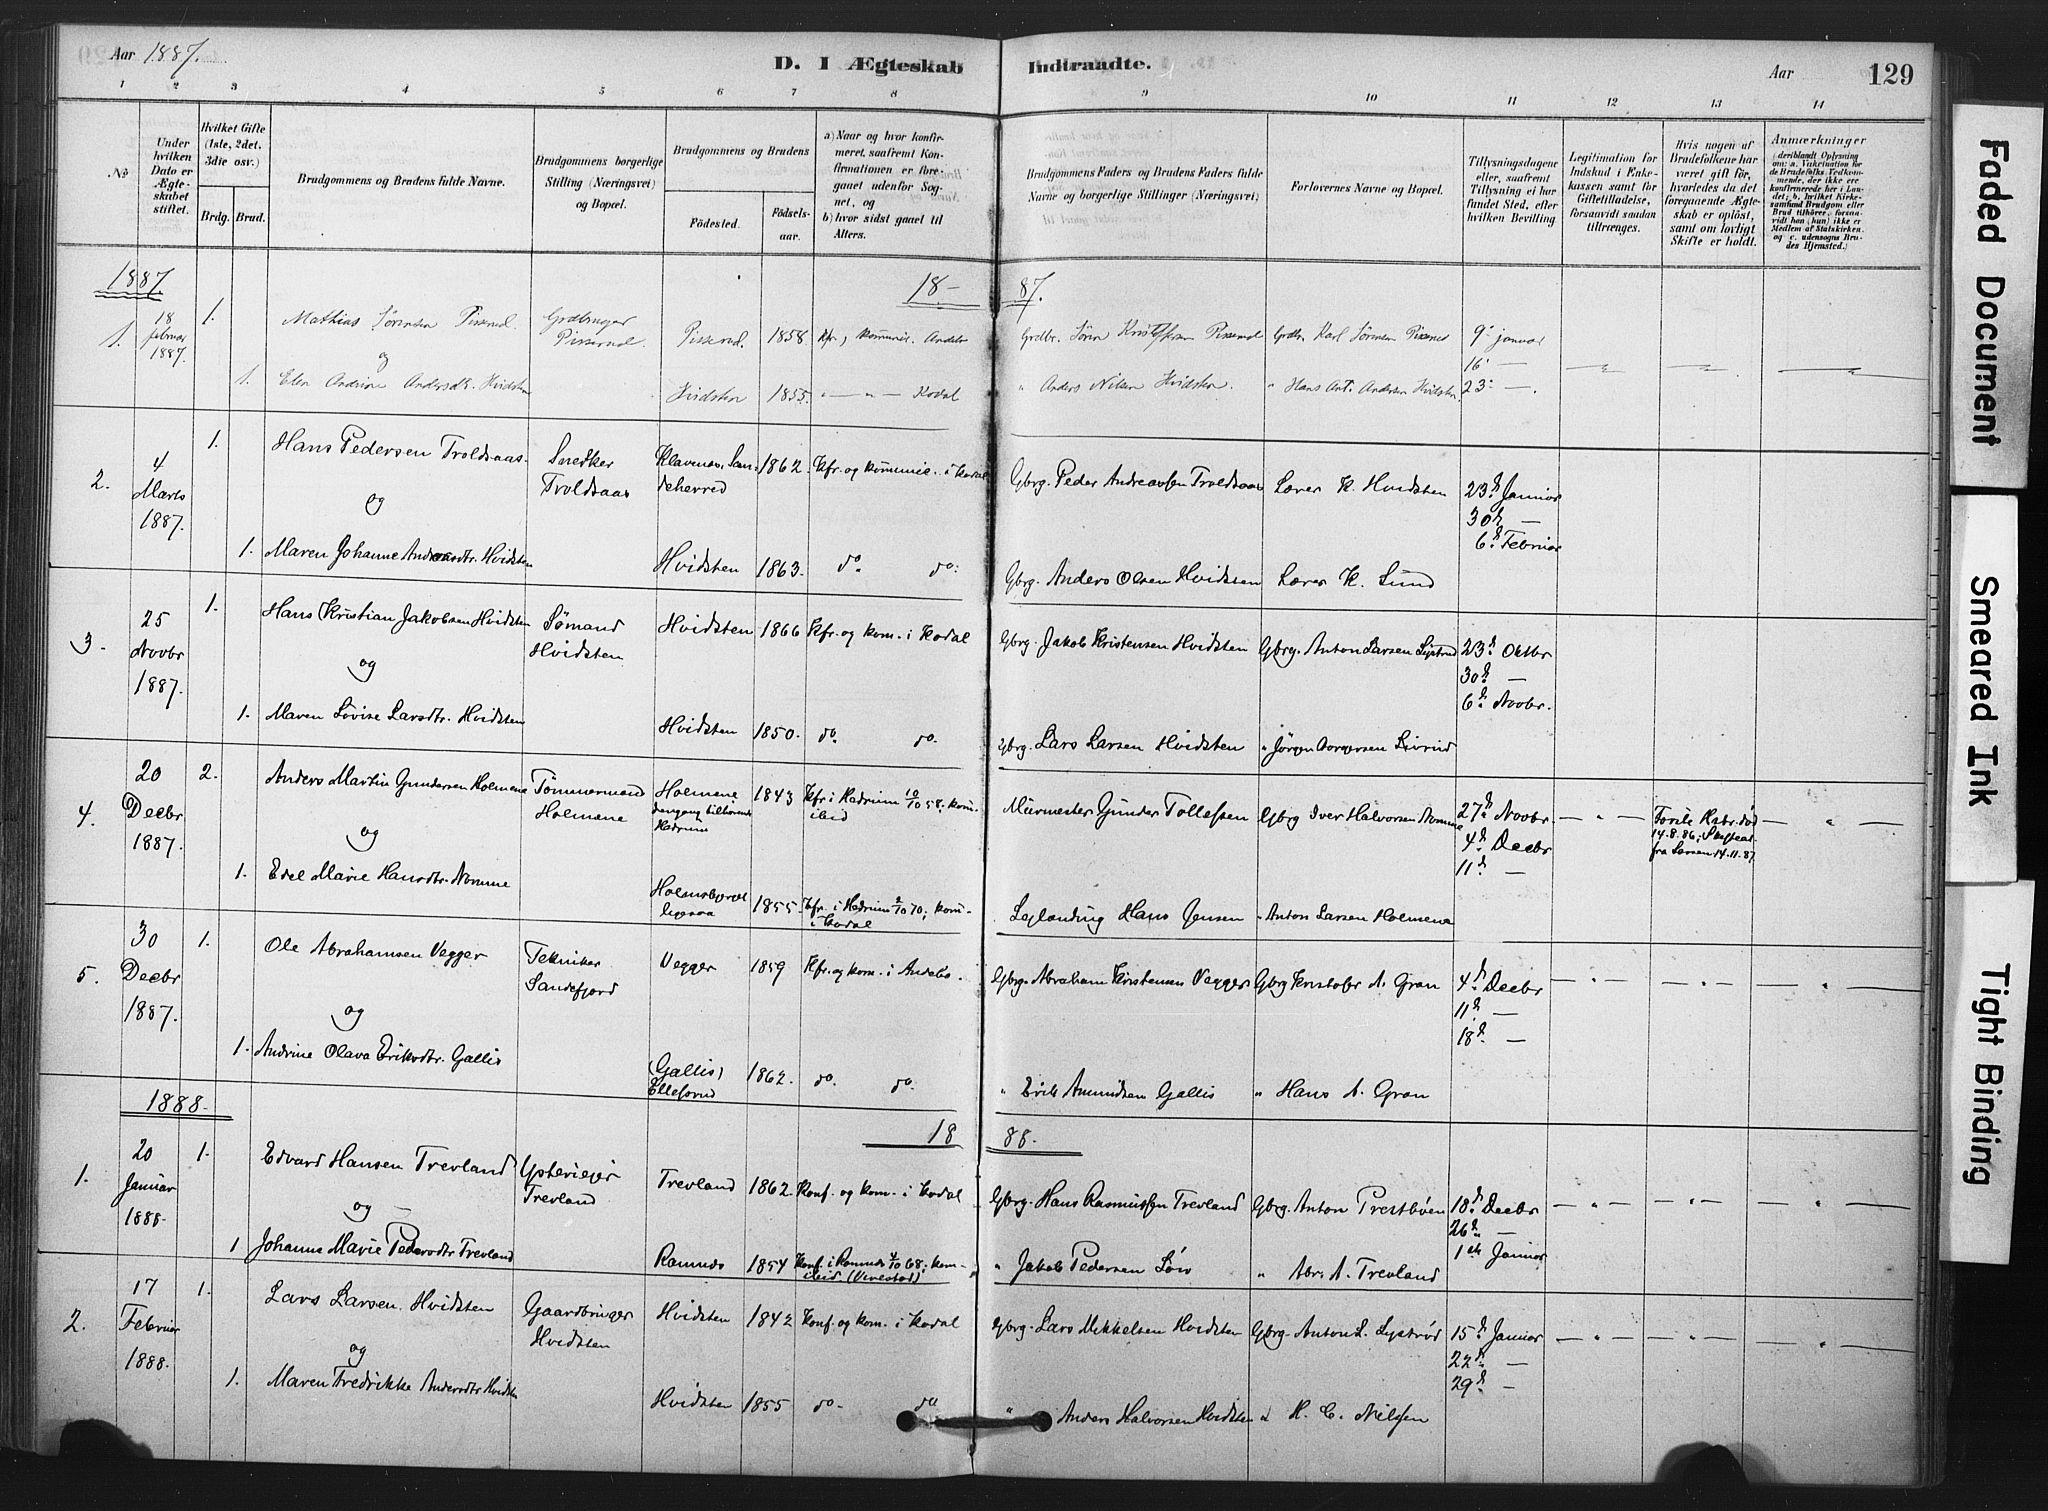 Aar 1887.
D. I Ægteskab Indtraadte.
Aar
129
1 2 3 4 5 6 7 8 9 10 11 12 13 14
No
Under hvilken Dato er Ægteskabet stiftet.
Hvilket Gifte (1ste, 2det, 3die osv.)
Brdg. Brud.
Brudgommens og Brudens fulde Navne.
Brudgommens borgerlige Stilling (Næringsvei) og Bopæl.
Brudgommens og Brudens
Fødested. Fødselsaar.
a) Naar og hvor konfirmeret, saafremt Konfirmationen er foregaaet udenfor Sognet, og
b) hvor sidst gaaet til Alters.
Brudgommens Faders og Brudens Faders fulde Navne og borgerlige Stillinger (Næringsvei)
Forlovernes Navne og Bopæl.
Tillysningsdagene eller, saafremt Tillysning ei har fundet Sted, efter hvilken Bevilling
Legitimation for Indskud i Enkekassen samt for Giftetilladelse, forsaavidt saadan tiltrænges.
Hvis nogen af Brudefolkene har været gift før, hvorledes da det foregaaende Ægteskab er opløst, samt om lovligt Skifte er holdt.
Anmærkninger
(deriblandt Oplysning om: a. Vakcination for de Brudefolks Vedkommende, der ikke ere konfirmerede her i Landet; b. hvilket Kirkesamfund Brudgom eller Brud tilhører, forsaavidt hon (han) ikke er Medlem af Statskirken, og c. udensogns Brudes Hjemsted.)
1887. 18- 87.
1. 18 Februar 1887. 1. Mathias Sørensen Pisserud. Grdbruger Pisserud Pisserud. 1858. Kfr., kommunic. Andebu Grdbr. Søren Kristofersen Pisserud Grdbr. Karl Sørensen Pisserud 9de januar
og 16 —
1. Elen Andrine Andersdtr. Hvidsten Hvidsten 1855. " — " — Kodal " Anders Nilsen Hvidsten. " Hans Ant. Andersen Hvidsten. 23 — .
2. 4 Marts 1887. 1. Hans Pedersen Troldsaas Snedker Troldsaas Klavenes, Sandeherred 1862. Kfr. og kommunic. i Kodal Gbrg. Peder Andreassen Troldsaas Lærer K. Hvidsten 23d Januar
og 30d —
6d Februar
1. Maren Johanne Andersdtr. Hvidsten Hvidsten 1863. do. do. Gbrg. Anders Olsen Hvidsten Lærer K. Lund
3. 25 Novbr 1887. 1. Hans Kristian Jakobsen Hvidsten Sømand Hvidsten Hvidsten 1866 Kfr. og kom. i Kodal Gbrg. Jakob Kristensen Hvidsten Gbrg. Anton Larsen 23d Oktbr
og 30d —
6d Novbr.
1. Maren Lovise Larsdtr. Hvidsten Hvidsten 1850. do. do. Gbrg. Lars Larsen Hvidsten " Jørgen
4. 20 Decbr 1887. 2. Anders Martin Gundersen Holmene Tømmermand Holmene Holmene dengang tilhørende Hedrum 1843 Kfr. i Hedrum 10/10 58; kom. ibid Murmester Gunder Tollefsen Gbrg Iver Halvorsen Nomme 27d Novbr. — " — Første Hstr. død 14.8.86; Skifteat. fra Larsen 14.11.87 — " —
og 4d Decbr
11d —
1. Edel Marie Hansdtr. Nomme 1855. Kfr. i Hedrum 2/10 70; kom. i Kodal Leilænding Hans Jensen " Anton Larsen Holmene
5. 30 Decbr 1887. 1. Ole Abrahamsen Vegger Tekniker Sandefjord Vegger 1859 Kfr. og kom. i Andebo. Gbrg. Abraham Kristensen Vegger Gbrg Kristofer A. Gran 4d Decbr — " — — " — — " —
og 11d —
18d —
1. Andrine Olava Eriksdtr. Gallis (Gallis) Ellefsrud 1862. do. do. " Erik Amundsen Gallis " Hans A. Gran
1888. 18 88.
1. 20 Januar 1888. 1. Edvard Hansen Trevland Ysterieejer Trevland Trevland 1862. Konf. og kom. i Kodal Gbrg. Hans Rasmussen Trevland Gbrg. Anton Prestbøen 18d Decbr — " — — " — — " —
og 26d —
1ste Januar
1 Johanne Marie Pedersdtr Trevland Ramnæs 1854 Konf. i Ramnæs 4/10 68; kom. ibid. " Jakob Pedersen " Abr. A. Trevland
2. 17 Februar 1888. 1. Lars Larsen Hvidsten Gaardbruger Hvidsten Hvidsten 1842 Konf. og kom. i Kodal Gbrg. Lars Mikkelsen Hvidsten Gbrg. Anton L. 15d Januar — " — — " — — " —
og 22d —
29d —
1. Maren Fredrikke Andersdtr Hvidsten Hvidsten 1855 do. do " Anders Halvorsen Hvidsten H. C. Nielsen
Faded Document
Smeared Ink
Tight Binding